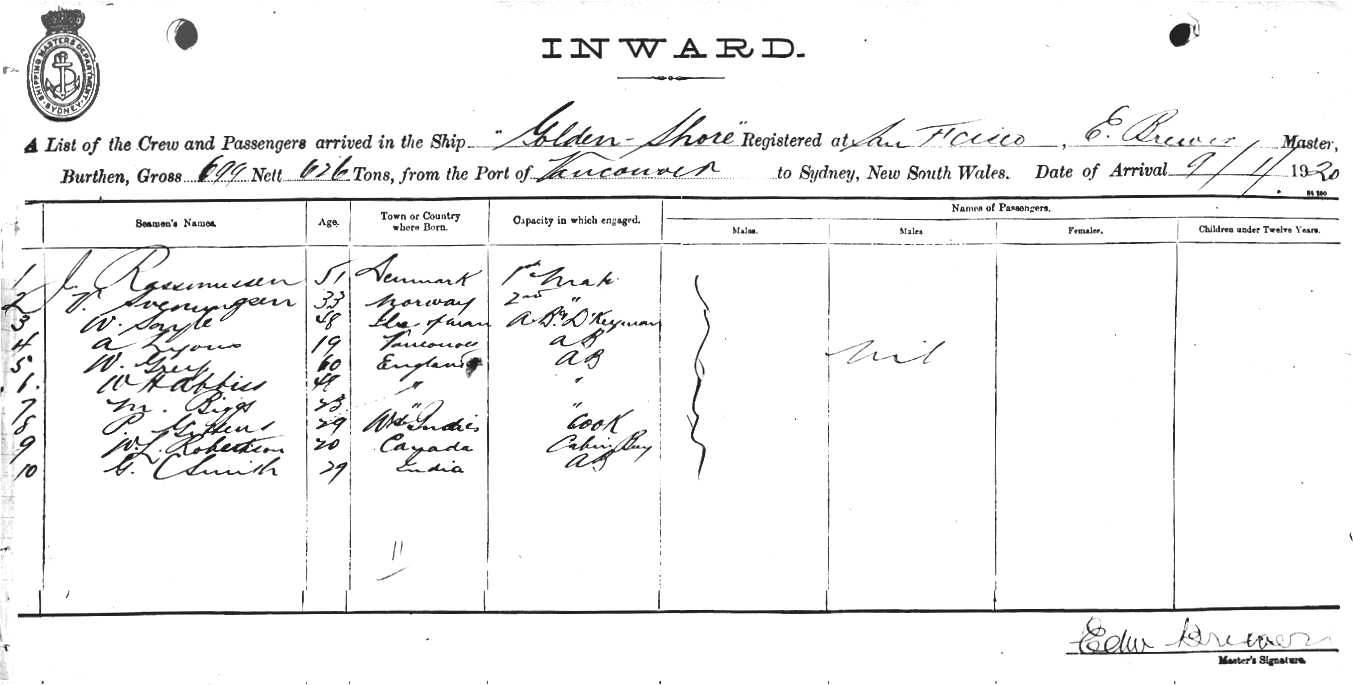 SHIPPING MASTERS DEPARTMENT SYDNEY
INWARD.
A List of the Crew and Passengers arrived in the Ship "Golden-Shore" Registered at San Fcisco, E. Brewer Master,
Burthen, Gross 699 Nett 626 Tons, from the Port of Vancouver to Sydney, New South Wales. Date of Arrival 9/1/1920
Seamen's Names. Age. Town or Country where Born. Capacity in which engaged. Names of Passengers.
Males. Males Females. Children under Twelve Years.
1 J. Rasmussen 51 Denmark 1st Mate
2 Sveningsen 33 Norway 2nd "
3 W. 48 Isle of man A.B. & D'Keyman
4 A Lyons 19 Vancouver AB
5 W. Grey 60 England AB Nil
6. W Habbiss 49 " "
7 M. Biggs 23 " "
8 P. Gittens 29 Wst Indies Cook
9 W.L. Robertson 20 Canada Cabin Boy
10 G. Smith 29 India AB
11
Edw Brewer
Master's Signature.